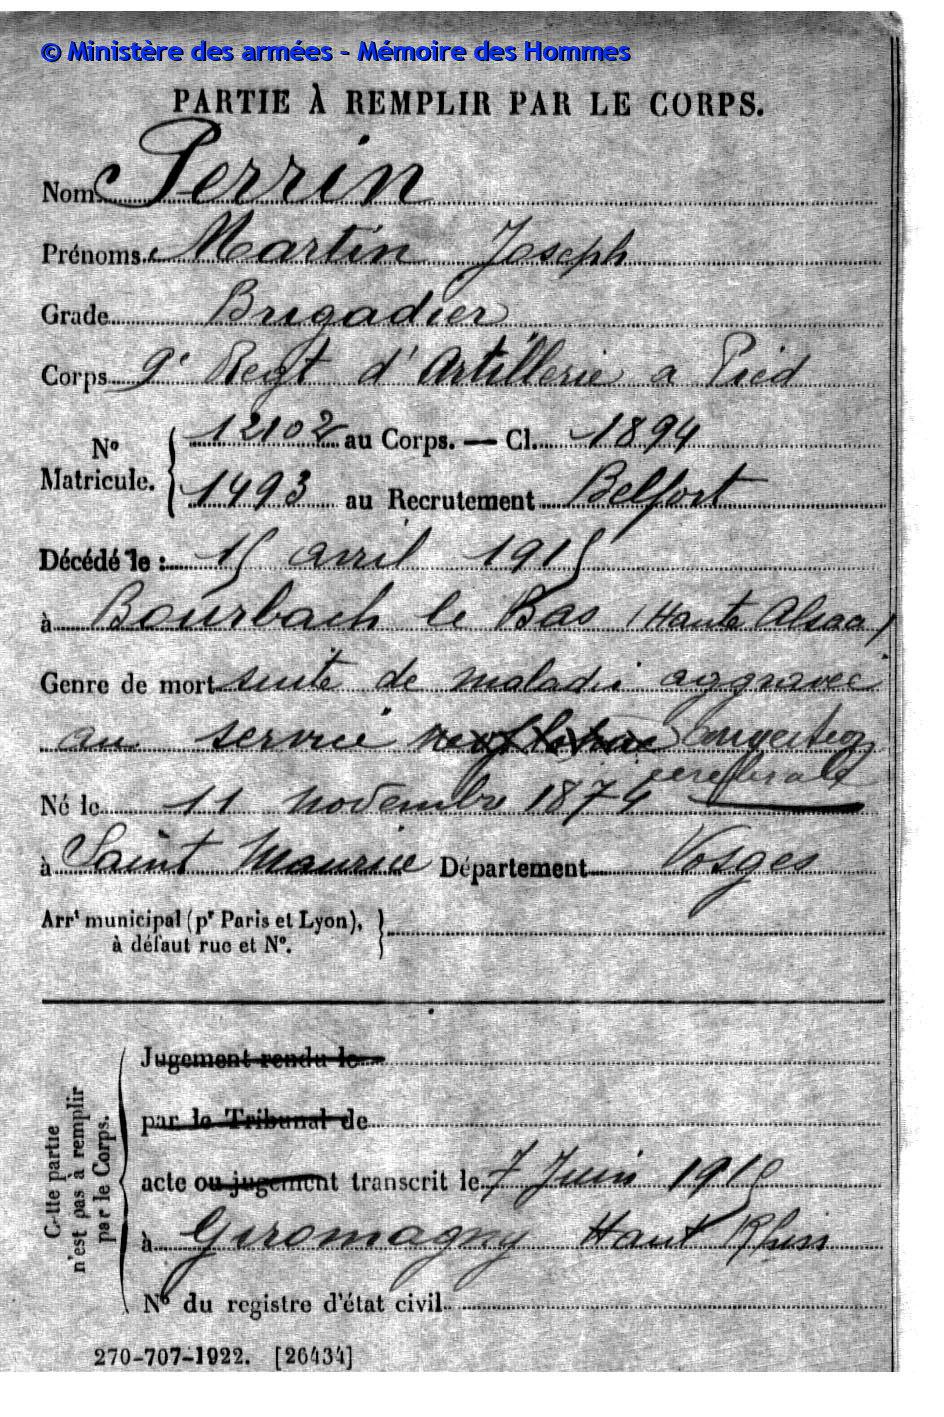 © Ministère des armées - Mémoire des Hommes
PARTIE À REMPLIR PAR LE CORPS.
Nom Perrin
Prénoms Martin Joseph
Grade Brigadier
Corps 9e Regt d'Artillerie a Pied
No Matricule. { 12102 au Corps. — Cl. 1894
1493 au Recrutement Belfort
Décédé le : 15 avril 1915
à Bourbach le Bas (Haute Alsace)
Genre de mort suite de maladie aggravée
au service Congestion
cerebrale
Né le 11 novembre 1874
à Saint Maurice Département Vosges
Arrt municipal (pr Paris et Lyon), }
à défaut rue et No.
Cette partie n'est pas à remplir par le Corps.
Jugement rendu le
par le Tribunal de
acte ou jugement transcrit le 7 Juin 1915
à Giromagny Haut Rhin
No du registre d'état civil
270-707-1922. [26434]